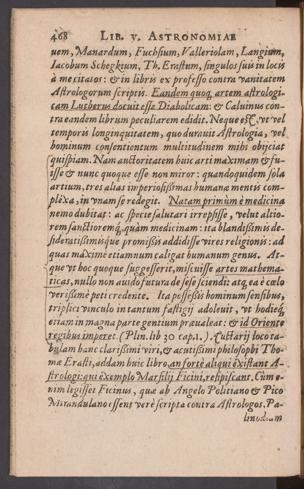 468 LIB. V. ASTRONOMIAE
uem, Manardum, Fuchsium, Valleriolam, Langium,
Iacobum Schegkium, Th. Erastum, singulos suis in locis
à me citatos: & in libris ex professo contra vanitatem
Astrologorum scriptis. Eandem quoq, artem astrologi-
cam Lutherus docuit esse Diabolicam: & Caluinus con-
tra eandem librum peculiarem edidit. Neque est, vt vel
temporis longinquitatem, quo durauit Astrologia, vel
hominum consentientum multitudinem mihi obijciat
quispiam. Nam auctoritatem huic arti maximam & fu-
isse & nunc quoque esse non miror: quandoquidem sola
artium, tres alias imperiosissimas humanæ mentis com-
plexa, in vnam se redegit. Natam primùm è medicina
nemo dubitat: ac specie salutari irrepsisse, velut altio-
rem sanctioremq́, quàm medicinam: ita blandissimis de-
sideratissimisque promissis addidisse vires religionis: ad
quas maximè etiamnum caligat humanum genus. At-
que vt hoc quoque suggesserit, miscuisse artes mathema-
ticas, nullo non auido futura de sese sciendi: atq, ea è cœlo
verissimè peti credente. Ita possessis hominum sensibus,
triplici vinculo in tantum fastigij adoleuit, vt hodieq́,
etiam in magna parte gentium præualeat: & id Oriente
regibus imperet. (Plin. lib 30 cap. 1.) Cuctarij loco ta-
bulam hanc clarissimi viri, & acutissimi philosophi Tho-
mæ Erasti, addam huic libro, an fortè aliqui existant A-
strologi: qui exemplo Marsilij Ficini, resipiscant. Cùm e-
nim legisset Ficinus, quæ ab Angelo Politiano & Pico
Mirandulano essent verè scripta contra Astrologos. Pa-
linodiam